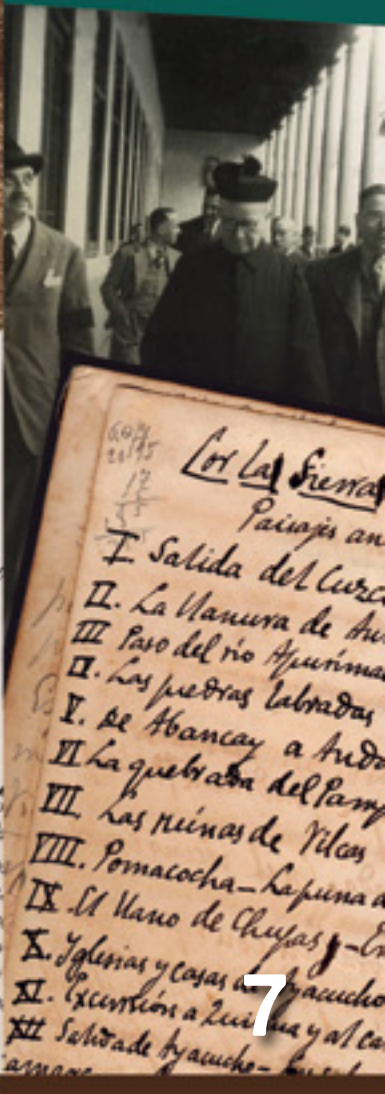 Por la Sierra
Paisajes an
I. Salida del Cuzc
II. La llanura de An
III Paso del rio Apurima
IV. Las piedras labradas
V. De Abancay a Anda
VI La quebrada del Pamp
VII. Las ruinas de Vilcas
VIII. Pomacocha - La puna d
IX El llano de Chupas, - En
X. Iglesias y casas de Ayacucho
XI. Excursión a Quinua y al ca
XII Salida de Ayacucho -
7